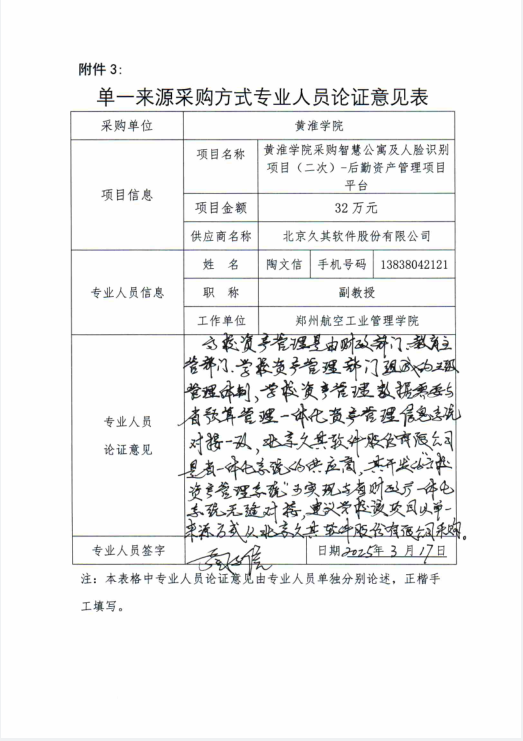 附件 3：
单一来源采购方式专业人员论证意见表
采购单位 黄淮学院
项目信息
项目名称 黄淮学院采购智慧公寓及人脸识别
项目（二次）-后勤资产管理项目
平台
项目金额 32 万元
供应商名称 北京久其软件股份有限公司
专业人员信息
姓 名 陶文信 手机号码 13838042121
职 称 副教授
工作单位 郑州航空工业管理学院
专业人员
论证意见
高校资产管理是由财政部门、教育主
管部门、学校资产管理部门组成的三级
管理体制，学校资产管理数据需要与
省预算管理一体化资产管理信息系统
对接一致，北京久其软件股份有限公司
是省一体化系统的供应商，其开发的“高校
资产管理系统”可实现与省财政厅一体化
系统无缝对接，建议学校该项目以单一
来源方式从北京久其软件股份有限公司采购。
专业人员签字 陶文信 日期 2025年 3 月 17日
注：本表格中专业人员论证意见由专业人员单独分别论述，正楷手
工填写。